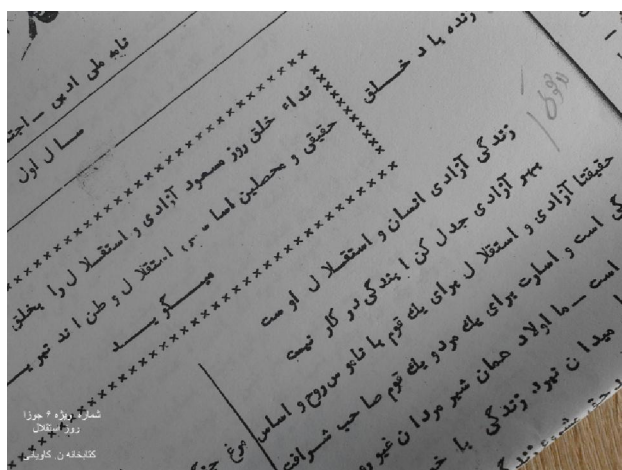 زنده باد خلق
نامه ملی ادبی - اجتـ
سال اول
نداء خلق روز مسعود آزادی و استقلال را بخلق
حقیقی و محصلین اساسی استقلال وطن اند تبریـ
میگوید
زندگی آزادی انسان و استقلال اوست
بهر آزادی جدل کن ابندگی در کار نیست
حقیقتا آزادی و استقلال برای یک قوم یا ناموس روح و اساس
گی است و اسارت برای یک مرد و یک قوم صاحب شرافت
است - ما اولاد همان شیر مردان غیو
میدان نبرد زندگی با
شماره ویژه ۶ جوزا
روز استقلال
کتابخانه ن. کاویانی